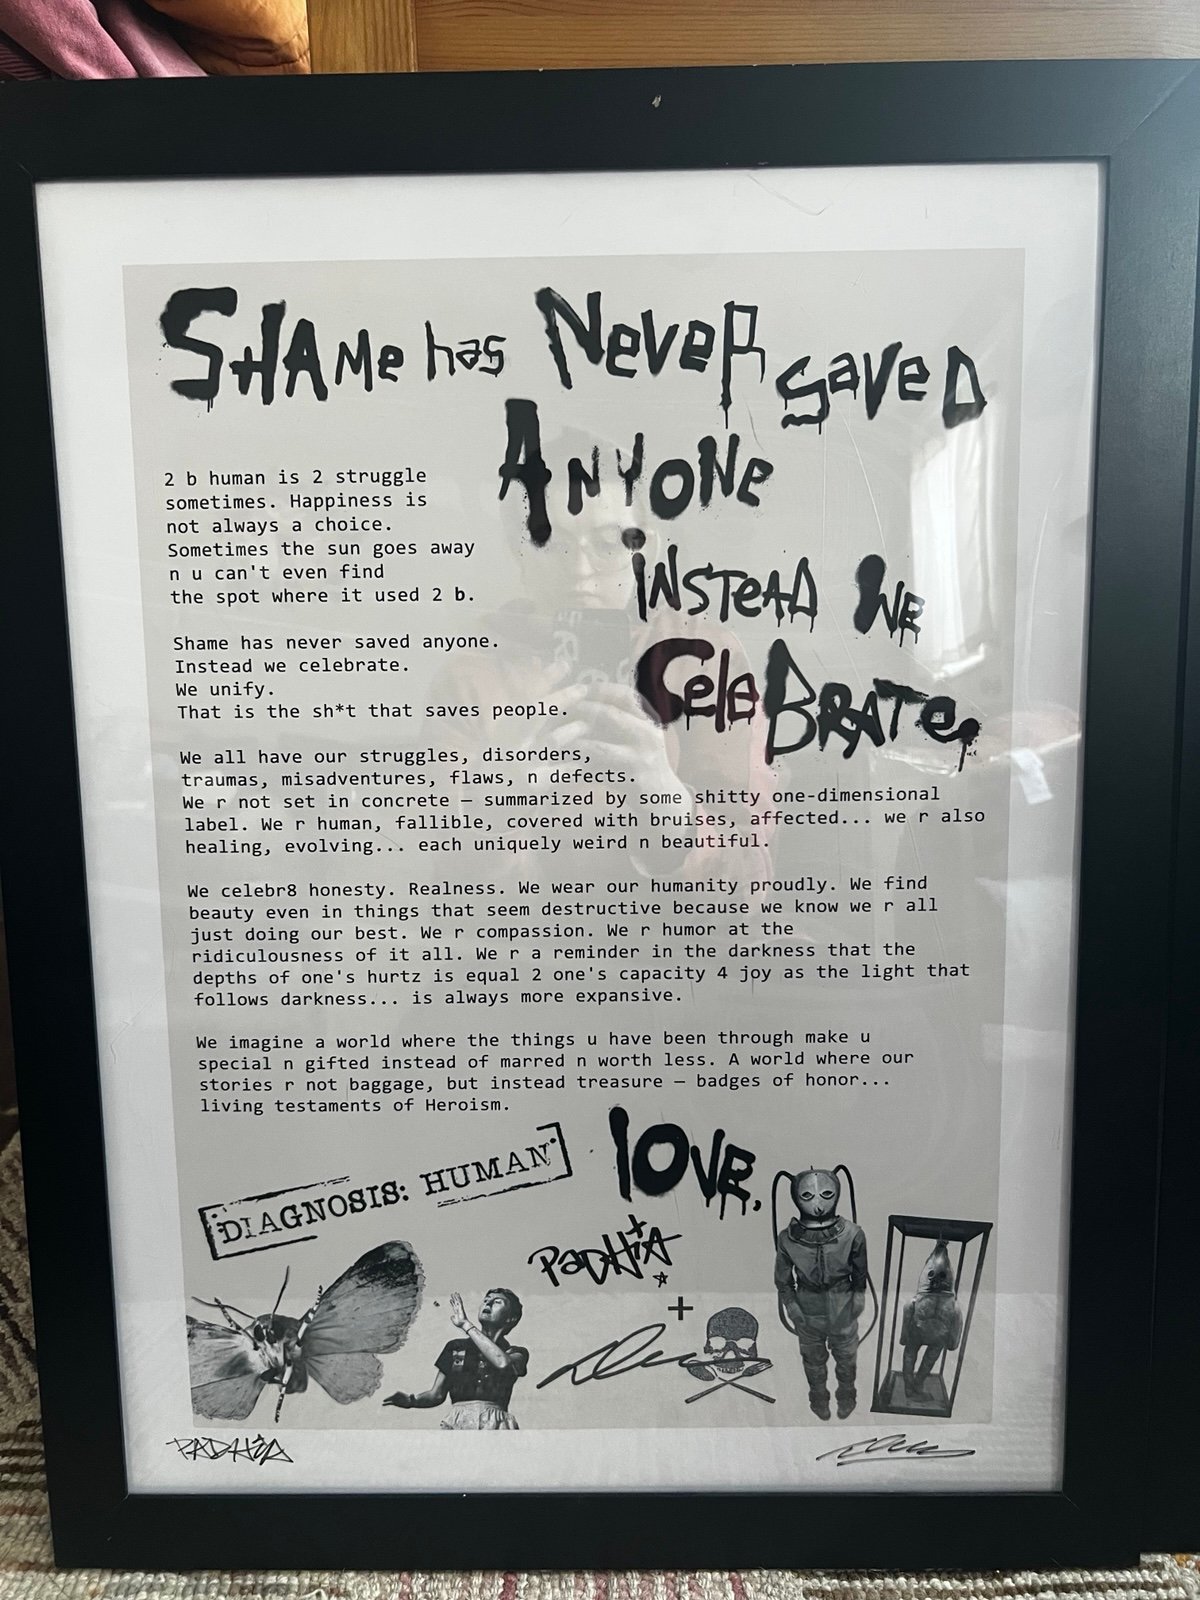 SHAMe has NeveR saveD
ANYONe
iNSTeAD We
CeleBRATe.
2 b human is 2 struggle
sometimes. Happiness is
not always a choice.
Sometimes the sun goes away
n u can't even find
the spot where it used 2 b.
Shame has never saved anyone.
Instead we celebrate.
We unify.
That is the sh*t that saves people.
We all have our struggles, disorders,
traumas, misadventures, flaws, n defects.
We r not set in concrete – summarized by some shitty one-dimensional
label. We r human, fallible, covered with bruises, affected... we r also
healing, evolving... each uniquely weird n beautiful.
We celebr8 honesty. Realness. We wear our humanity proudly. We find
beauty even in things that seem destructive because we know we r all
just doing our best. We r compassion. We r humor at the
ridiculousness of it all. We r a reminder in the darkness that the
depths of one's hurtz is equal 2 one's capacity 4 joy as the light that
follows darkness... is always more expansive.
We imagine a world where the things u have been through make u
special n gifted instead of marred n worth less. A world where our
stories r not baggage, but instead treasure – badges of honor...
living testaments of Heroism.
love,
DIAGNOSIS: HUMAN
PADHiA
+
PADHiA